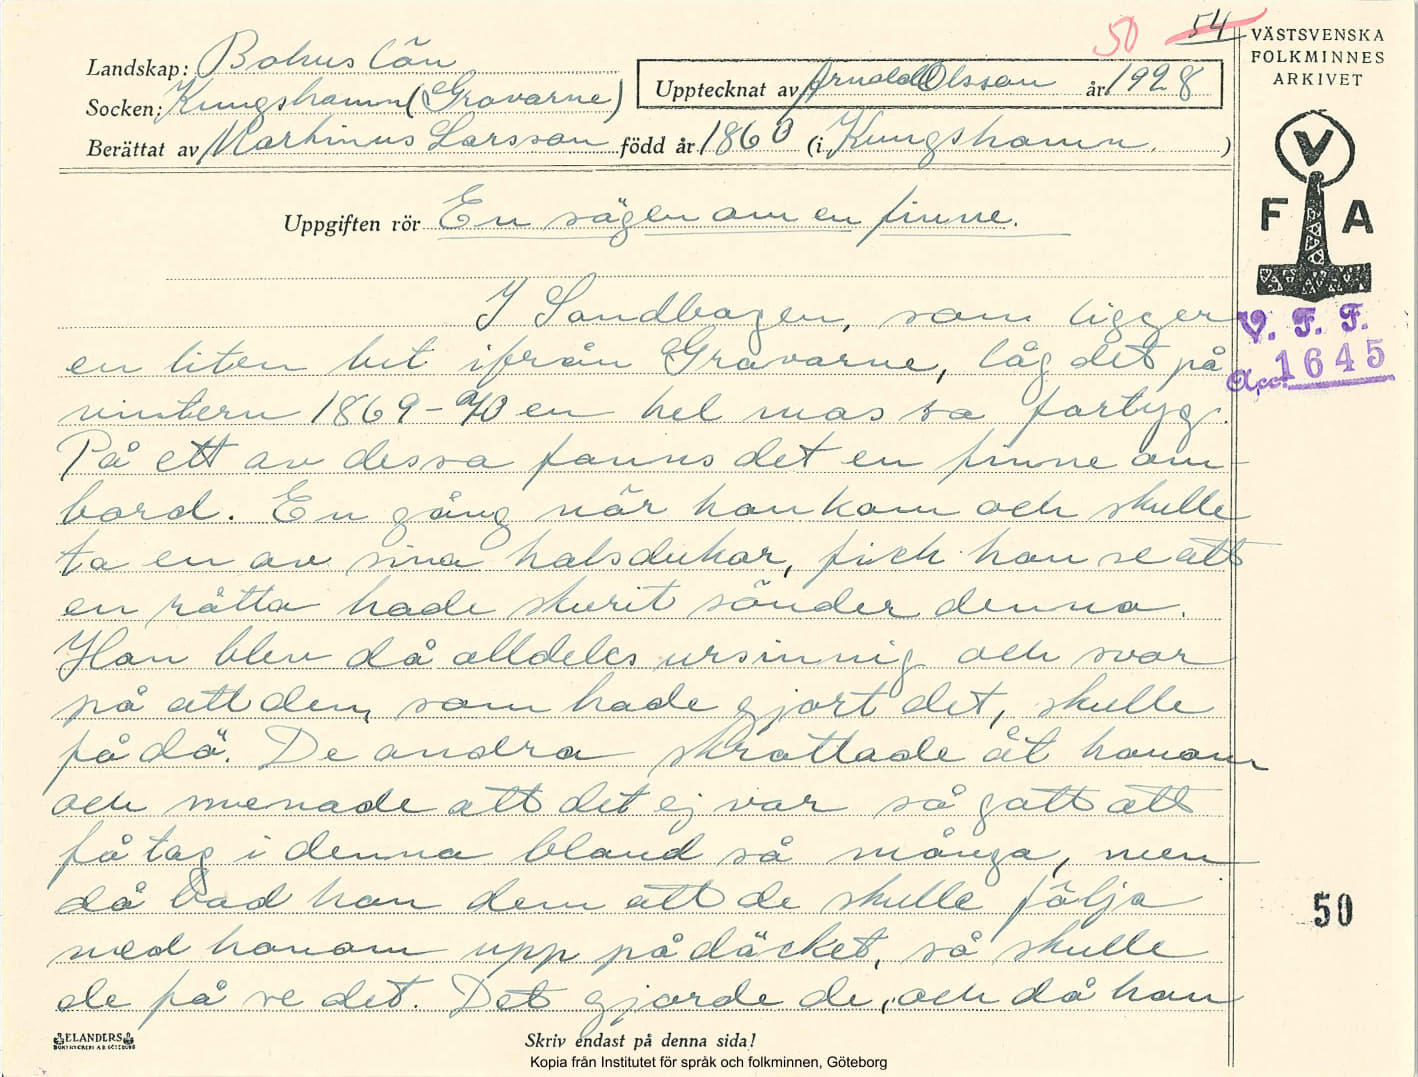 50 54
VÄSTSVENSKA
FOLKMINNES
ARKIVET
Landskap: Bohus län
Socken: Kungshamn (Gravarne)
Upptecknat av Arnold Olsson år 1928
Berättat av Martinus Larsson född år 1860 (i Kungshamn.)
V
F A
Uppgiften rör En sägen om en finne.
V. F. F.
Acc. 1645
I Sandbogen, som ligger
en liten bit ifrån Gravarne, låg det på
vintern 1869-70 en hel massa fartyg.
På ett av dessa fanns det en finne om-
bord. En gång när han kom och skulle
ta en av sina halsdukar, fick han se att
en råtta hade skurit sönder denna.
Han blev då alldeles ursinnig och svor
på att den, som hade gjort det, skulle
få dö. De andra skrattade åt honom
och menade att det ej var så gott att
få tag i denna bland så många, men
då bad han dem att de skulle följa
med honom upp på däcket, så skulle
de få se det. Det gjorde de, och då han
50
ELANDERS
BOKTRYCKERI A.B. GÖTEBORG
Skriv endast på denna sida!
Kopia från Institutet för språk och folkminnen, Göteborg